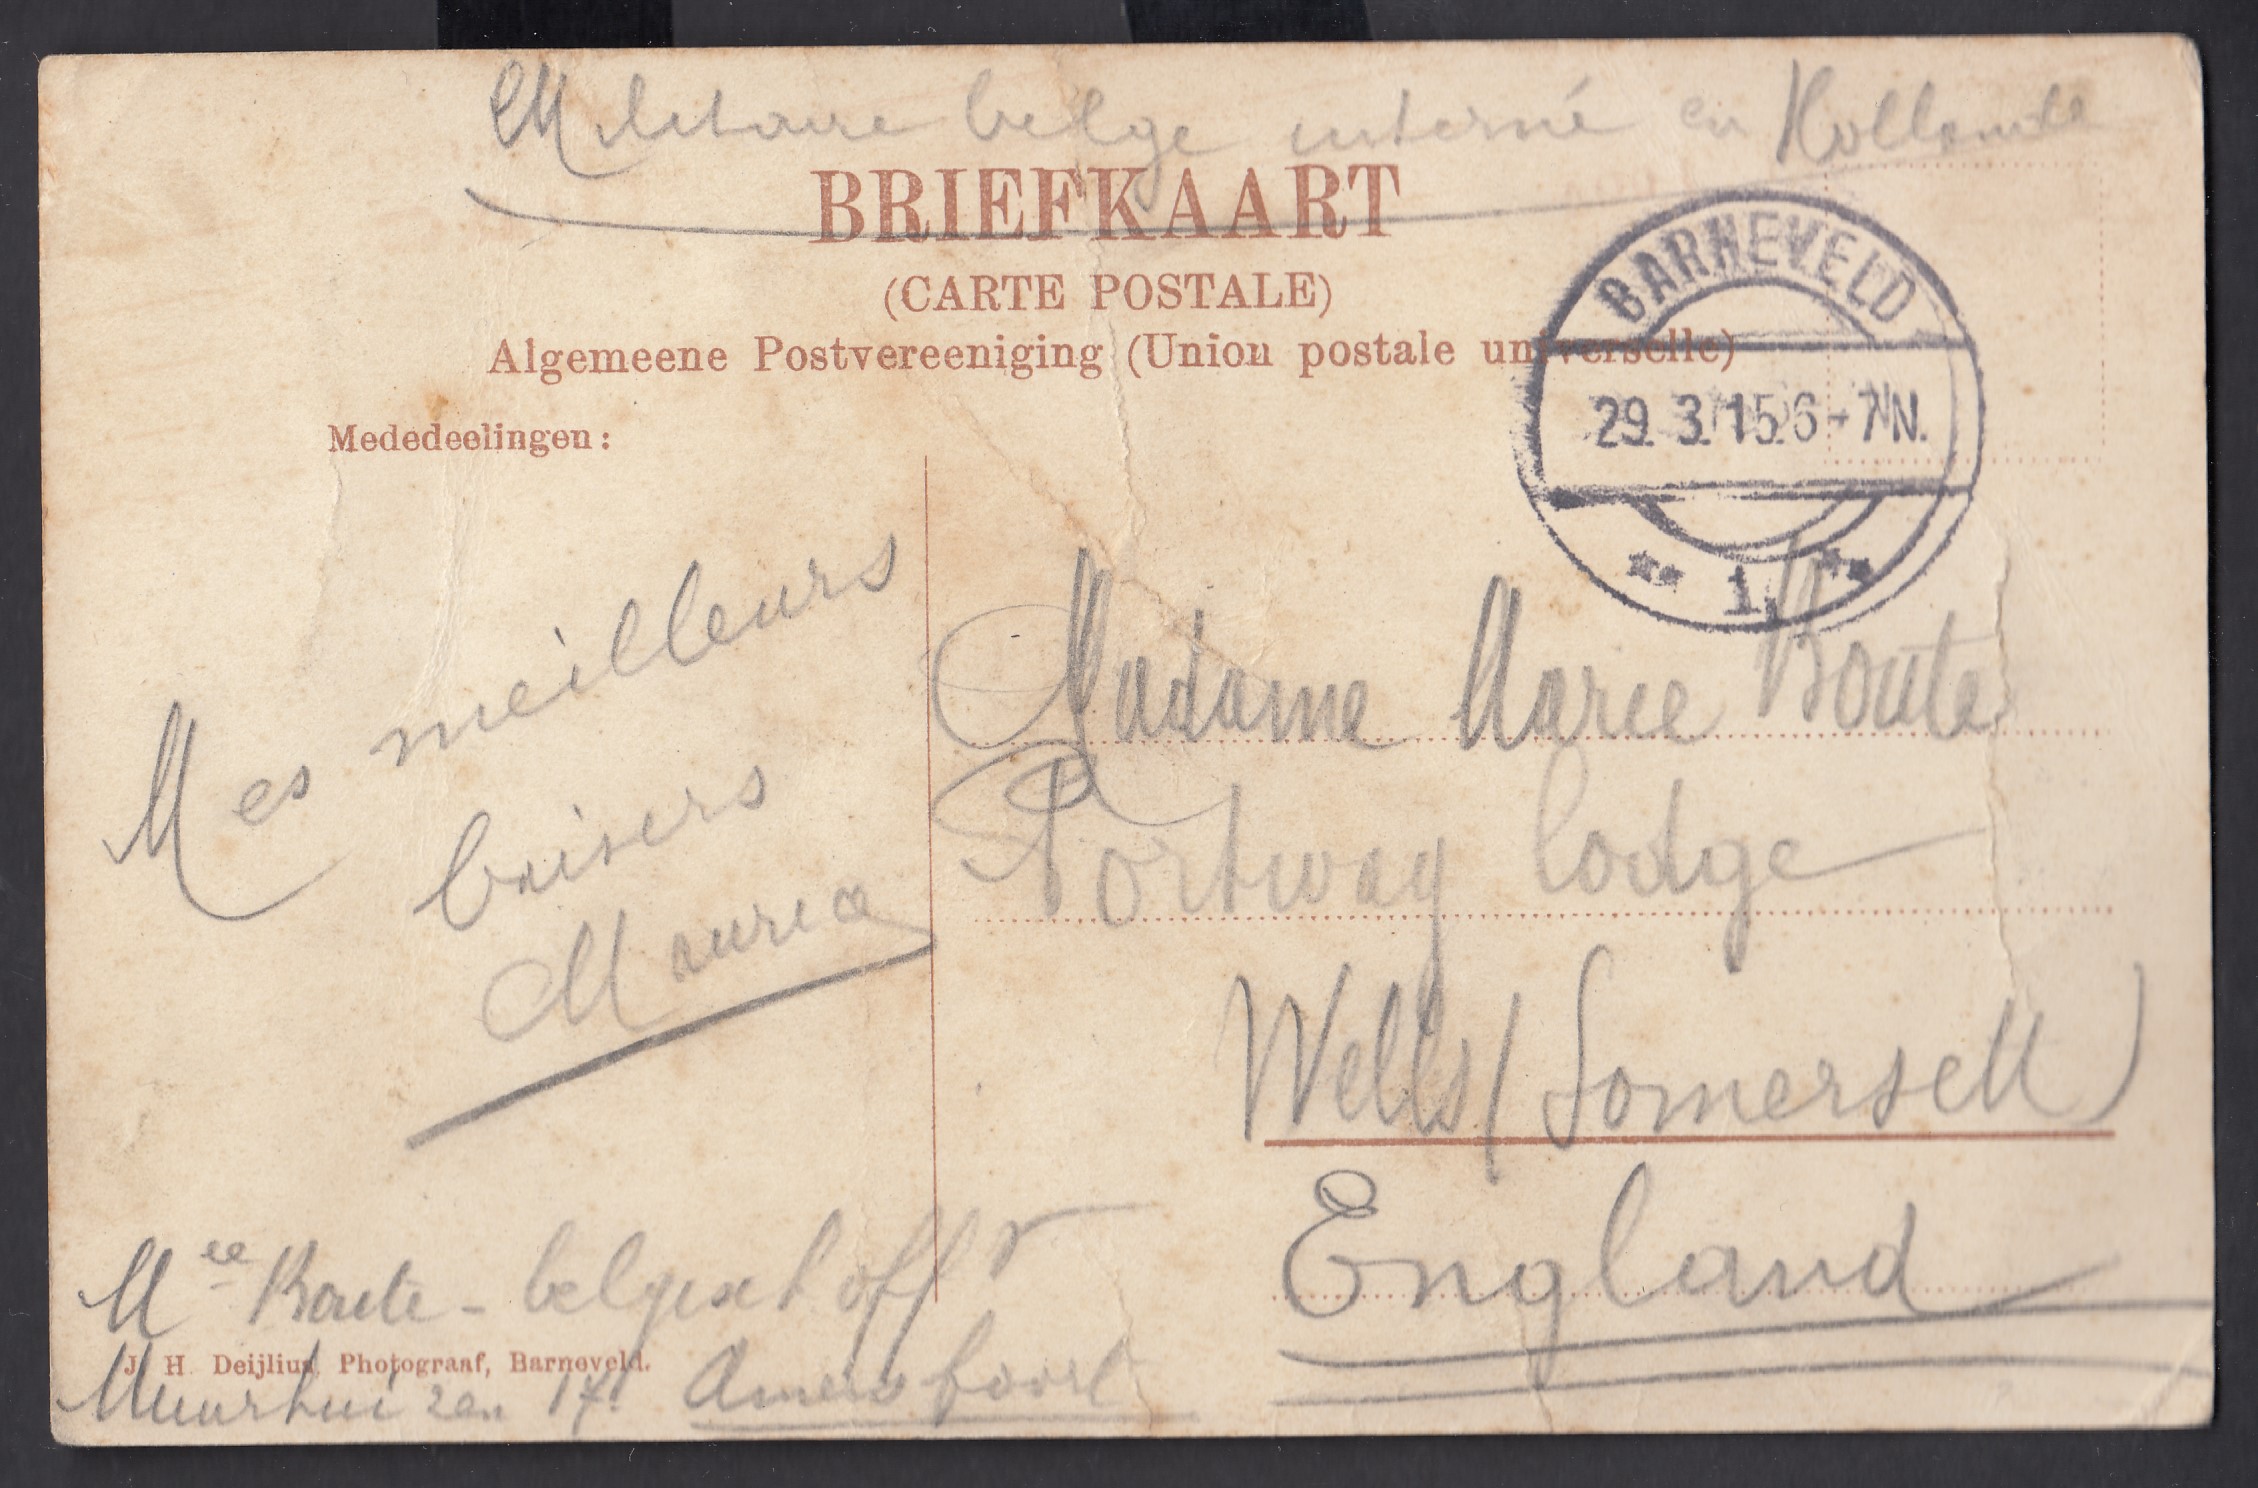 Militaire belge interné en Hollande
BRIEFKAART
(CARTE POSTALE)
Algemeene Postvereeniging (Union postale universelle)
BARNEVELD
29.3.15 6-7 N.
1
Mededeelingen:
Mes meilleurs
baisers
Maurice
Madame Marie Boute
Portway lodge
Wells (Somersett)
England
Mce Boute - belgisch offr
J. H. Deijlius, Photograaf, Barneveld.
Muurhuizen 17 Amersfoort